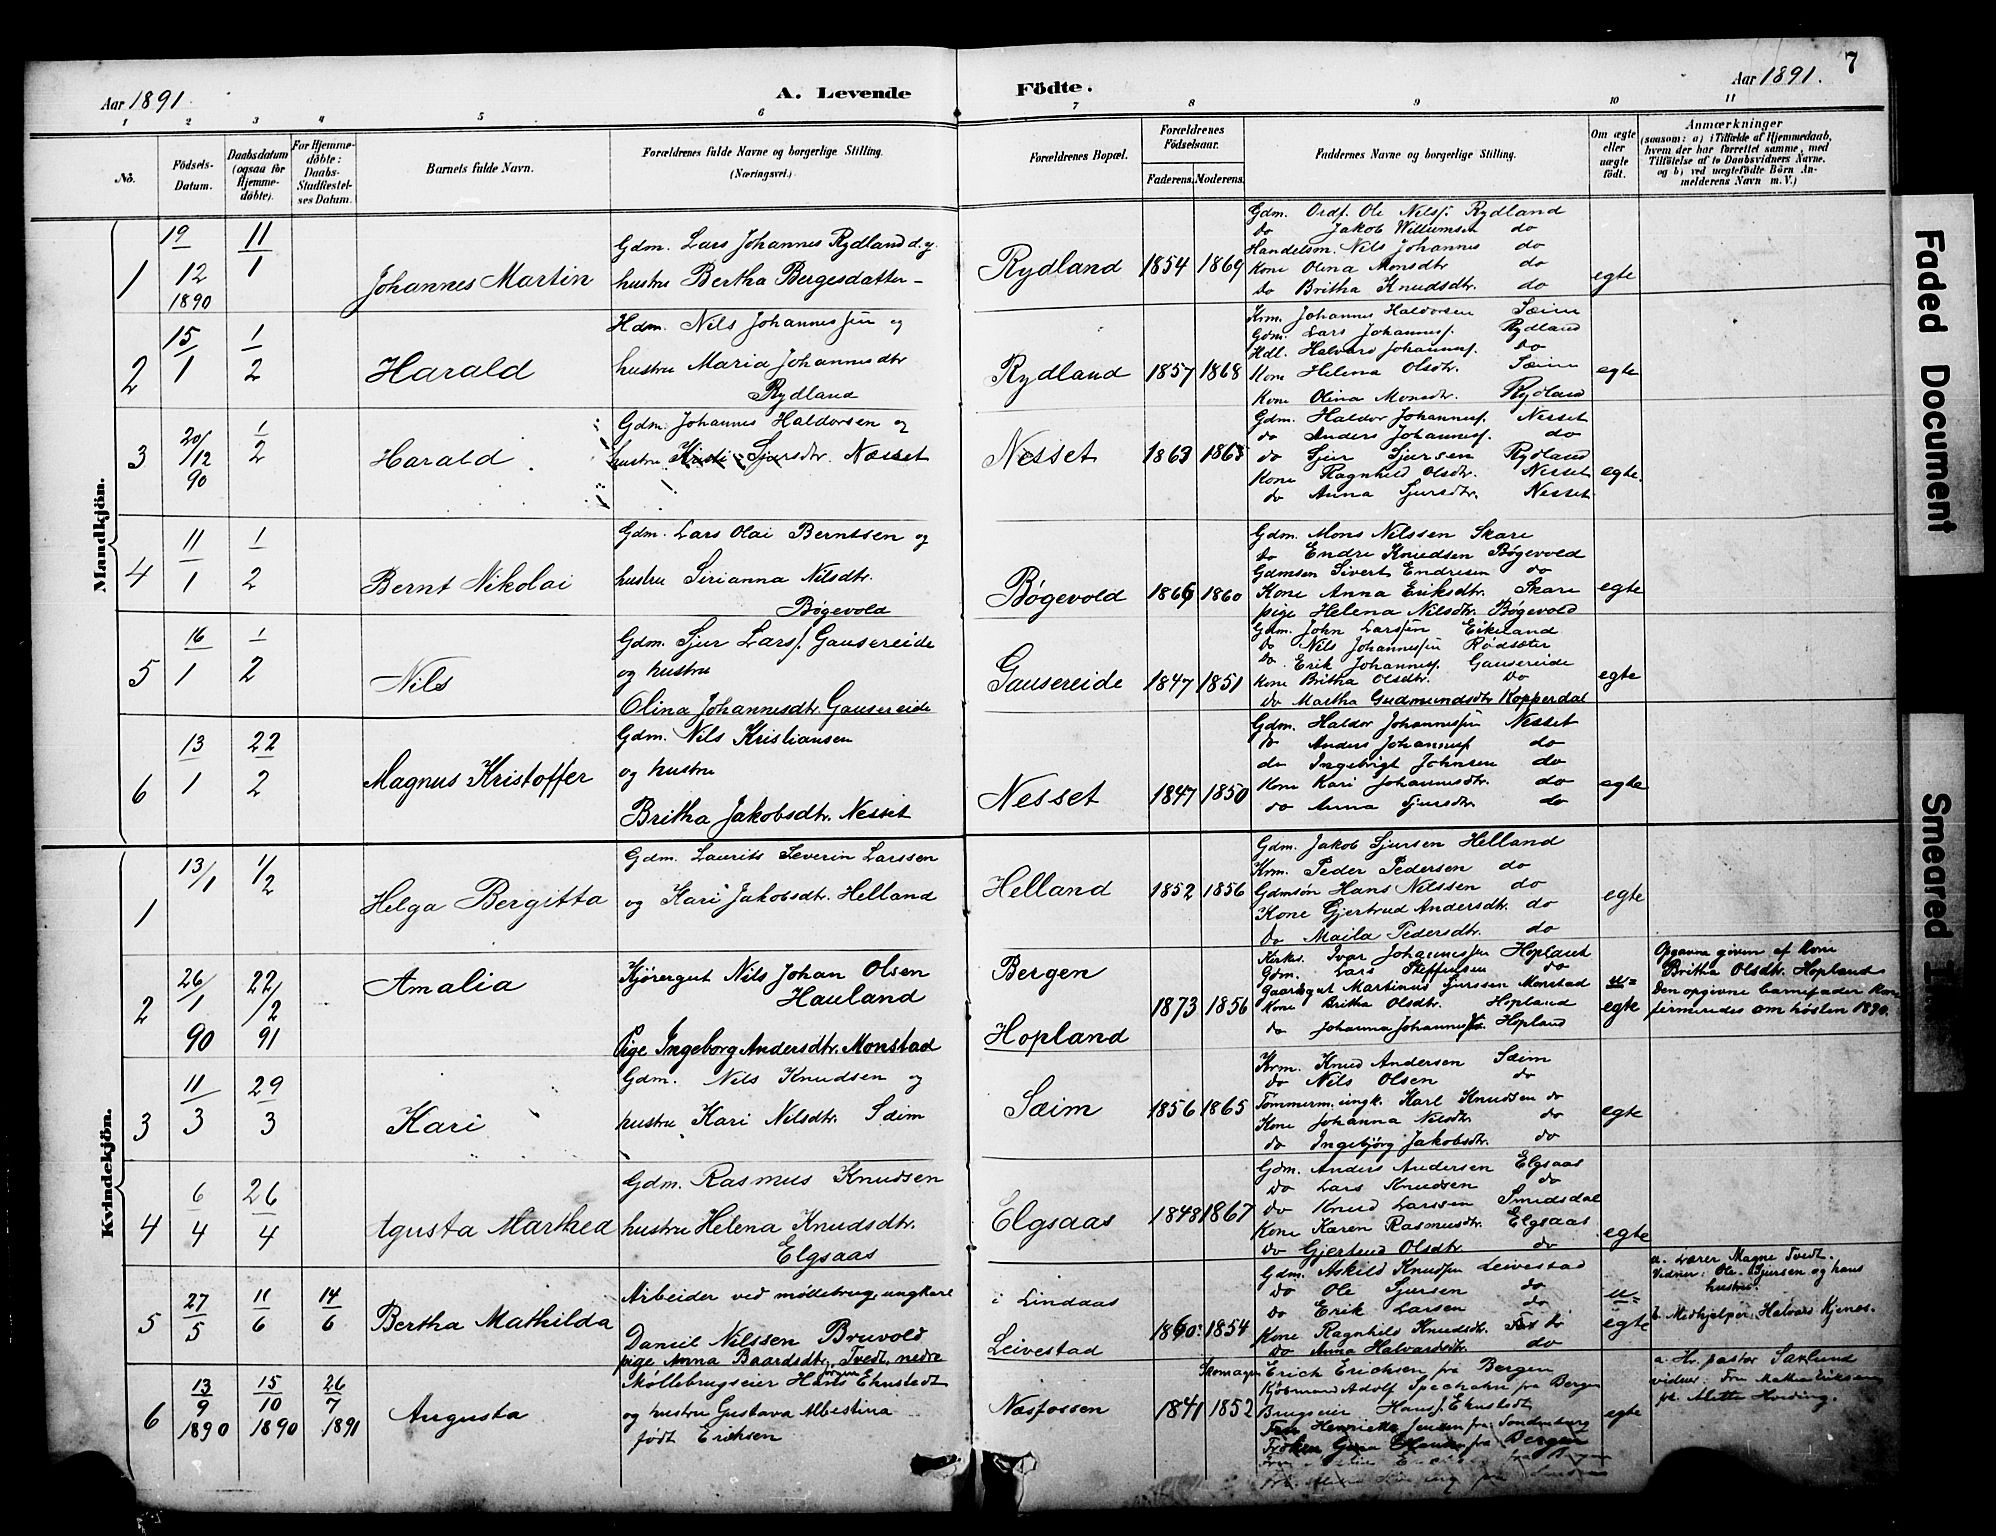 7
Aar 1891.
A. Levende
Födte.
Aar 1891.
1 2 3 4 5 6 7 8 9 10 11
No.
Födsels-Datum.
Daabsdatum (ogsaa for Hjemmedöbte).
For Hjemmedöbte: Daabs-Stadfæstelses Datum.
Barnets fulde Navn.
Forældrenes fulde Navne og borgerlige Stilling. (Næringsvei.)
Forældrenes Bopæl.
Forældrenes Födselsaar.
Faderens. Moderens.
Faddernes Navne og borgerlige Stilling.
Om ægte eller uægte födt.
Anmærkninger
(saasom: a) i Tilfælde af Hjemmedaab, hvem der har forrettet samme, med Tilföielse af to Daabsvidners Navne. og b) ved uægtefödte Börn Anmelderens Navn m. V.)
Mandkjön.
1
19/12 1890
11/1
Johannes Martin
Gdm. Lars Johannes Rydland d.y.
hustru Bertha Bergesdatter
Rydland
1854 1869
Gdm. Ordf. Ole Nilsf. Rydland
do Jakob Willumsen do
Handelsm. Nils Johannes do
Kone Olina Monsdtr do
do Britha Knudsdtr. do
egte
2
15/1
1/2
Harald
Hdm. Nils Johannessen og
hustru Maria Johannesdtr
Rydland
Rydland
1857 1868
Krm. Johannes Haldorsen Sæim
Gdm. Lars Johannesf. Rydland
Hdl. Halvard Johannesf. do
Kone Helena Olsdtr. Sæim
Kone Olina Monsdtr. Rydland
egte
3
20/12 90
1/2
Harald
Gdm. Johannes Haldorsen og
hustru Kristi Sjursdtr. Næsset
Nesset
1863 1865
Gdm. Haldor Johannesf. Nesset
do Anders Johannesf. do
do Sjur Sjursen Rydland
Kone Ragnhild Olsdtr. Nesset
do Anna Sjursdtr. Nesset
egte.
4
11/1
1/2
Bernt Nikolai
Gdm. Lars Olai Berntsen og
hustru Sirianna Nilsdtr.
Bøgevold
Bøgevold
1869 1860
Gdm. Mons Nilssen Skare
do Endre Knudsen Bøgevold
Gdmsøn Sivert Endresen do
Kone Anna Eriksdtr. Skare
pige Helena Nilsdtr. Bøgevold
egte
5
16/1
1/2
Nils
Gdm. Sjur Larsf. Gausereide
og hustru
Olina Johannesdtr. Gausereide
Gausereide
1847 1851
Gdm. John Larssen Eikeland
do Nils Johannessen Rødsæter
do Erik Johannesf. Gausereide
Kone Britha Olsdtr. do
do Martha Gudmundsdtr Kopperdal
egte
6
13/1
22/2
Magnus Kristoffer
Gdm. Nils Kristiansen
og hustru
Britha Jakobsdtr. Nesset
Nesset
1847 1850
Gdm. Haldor Johannessen Nesset
do Anders Johannesf do
do Ingebrigt Johnsen do
Kone Kari Johannesdtr. do
do Anna Sjursdtr do
egte
Kvindekjön.
1
13/1
1/2
Helga Bergitta
Gdm. Laurits Severin Larssen
og Kari Jakobsdtr. Helland
Helland
1852 1856
Gdm. Jakob Sjursen Helland
Krm. Peder Pedersen do
Gdmsøn Hans Nilssen do
Kone Gjertrud Andersdtr. do
do Maila Pedersdtr. do
egte
2
26/1 90
22/2 91
Amalia
Kjørergut Nils Johan Olsen
Hauland
Pige Ingeborg Andersdtr. Monstad
Bergen
Hopland
1873 1856
Kirkes. Ivar Johannessen Hopland
Gdm. Lars Steffensen do
Gaardsgut Martinus Sjurssen Monstad
Kone Britha Olsdtr. Hopland
do Johanna Johannes Hopland
u=egte
Opgaven given af Kone
Britha Olsdtr. Hopland
Den opgivne barnefader Konfirmeredes om høsten 1890.
3
11/3
29/3
Kari
Gdm. Nils Knudsen og
hustru Kari Nilsdtr. Sæim
Sæim
1856 1865
Krm. Knud Andersen Sæim
do Nils Olsen do
Tømmerm. ungk. Karl Knudsen do
Kone Johanna Nilsdtr. do
do Ingebjørg Jakobsdtr. do
egte
4
6/4
26/4
Agusta Marthea
Gdm. Rasmus Knudsen
hustru Helena Knudsdtr.
Elgsaas
Elgsaas
1848 1867
Gdm. Anders Andersen Elgsaas
do Lars Knudsen do
do Knud Larssen Smidsdal
Kone Karen Rasmusdtr. Elgsaas
do Gjertrud Olsdtr. do
egte
5
27/5
11/6
14/6
Bertha Mathilda
Arbeider ved møllebrug, ungkarl
Daniel Nilssen Bruvold
pige Anna Baardsdtr. Tvedt, nedre
i Lindaas
Leivestad
1860 1854
Gdm. Askild Knudsen Leivestad
do Ole Sjursen do
do Erik Larsen do
Kone Ragnhild Knudsdtr. do
do Anna Halvardsdtr. do
u=egte
a. Lærer Magne Tvedt.
Vidner: Ole Sjursen og hans
hustru.
b. Medhjelper Halvard Kjenes.
6
13/9 1890
15/10 1890
26/7 1891
Augusta
Møllebrugseier Hans Ehnstedt
og hustru Gustava Albertina
født Erichsen
Næsfossen
1841 1852
Skomager Erich Erichsen fra Bergen
Kjøbmand Adolf Spechahn fra Bergen
Brugseier Hans J. Ehnstedt
Fru Henriette Jensen fra Sonderburg
Frøken fra Bergen
egte
a. Hr. pastor Saxlund
vidner: Fru Erichsen